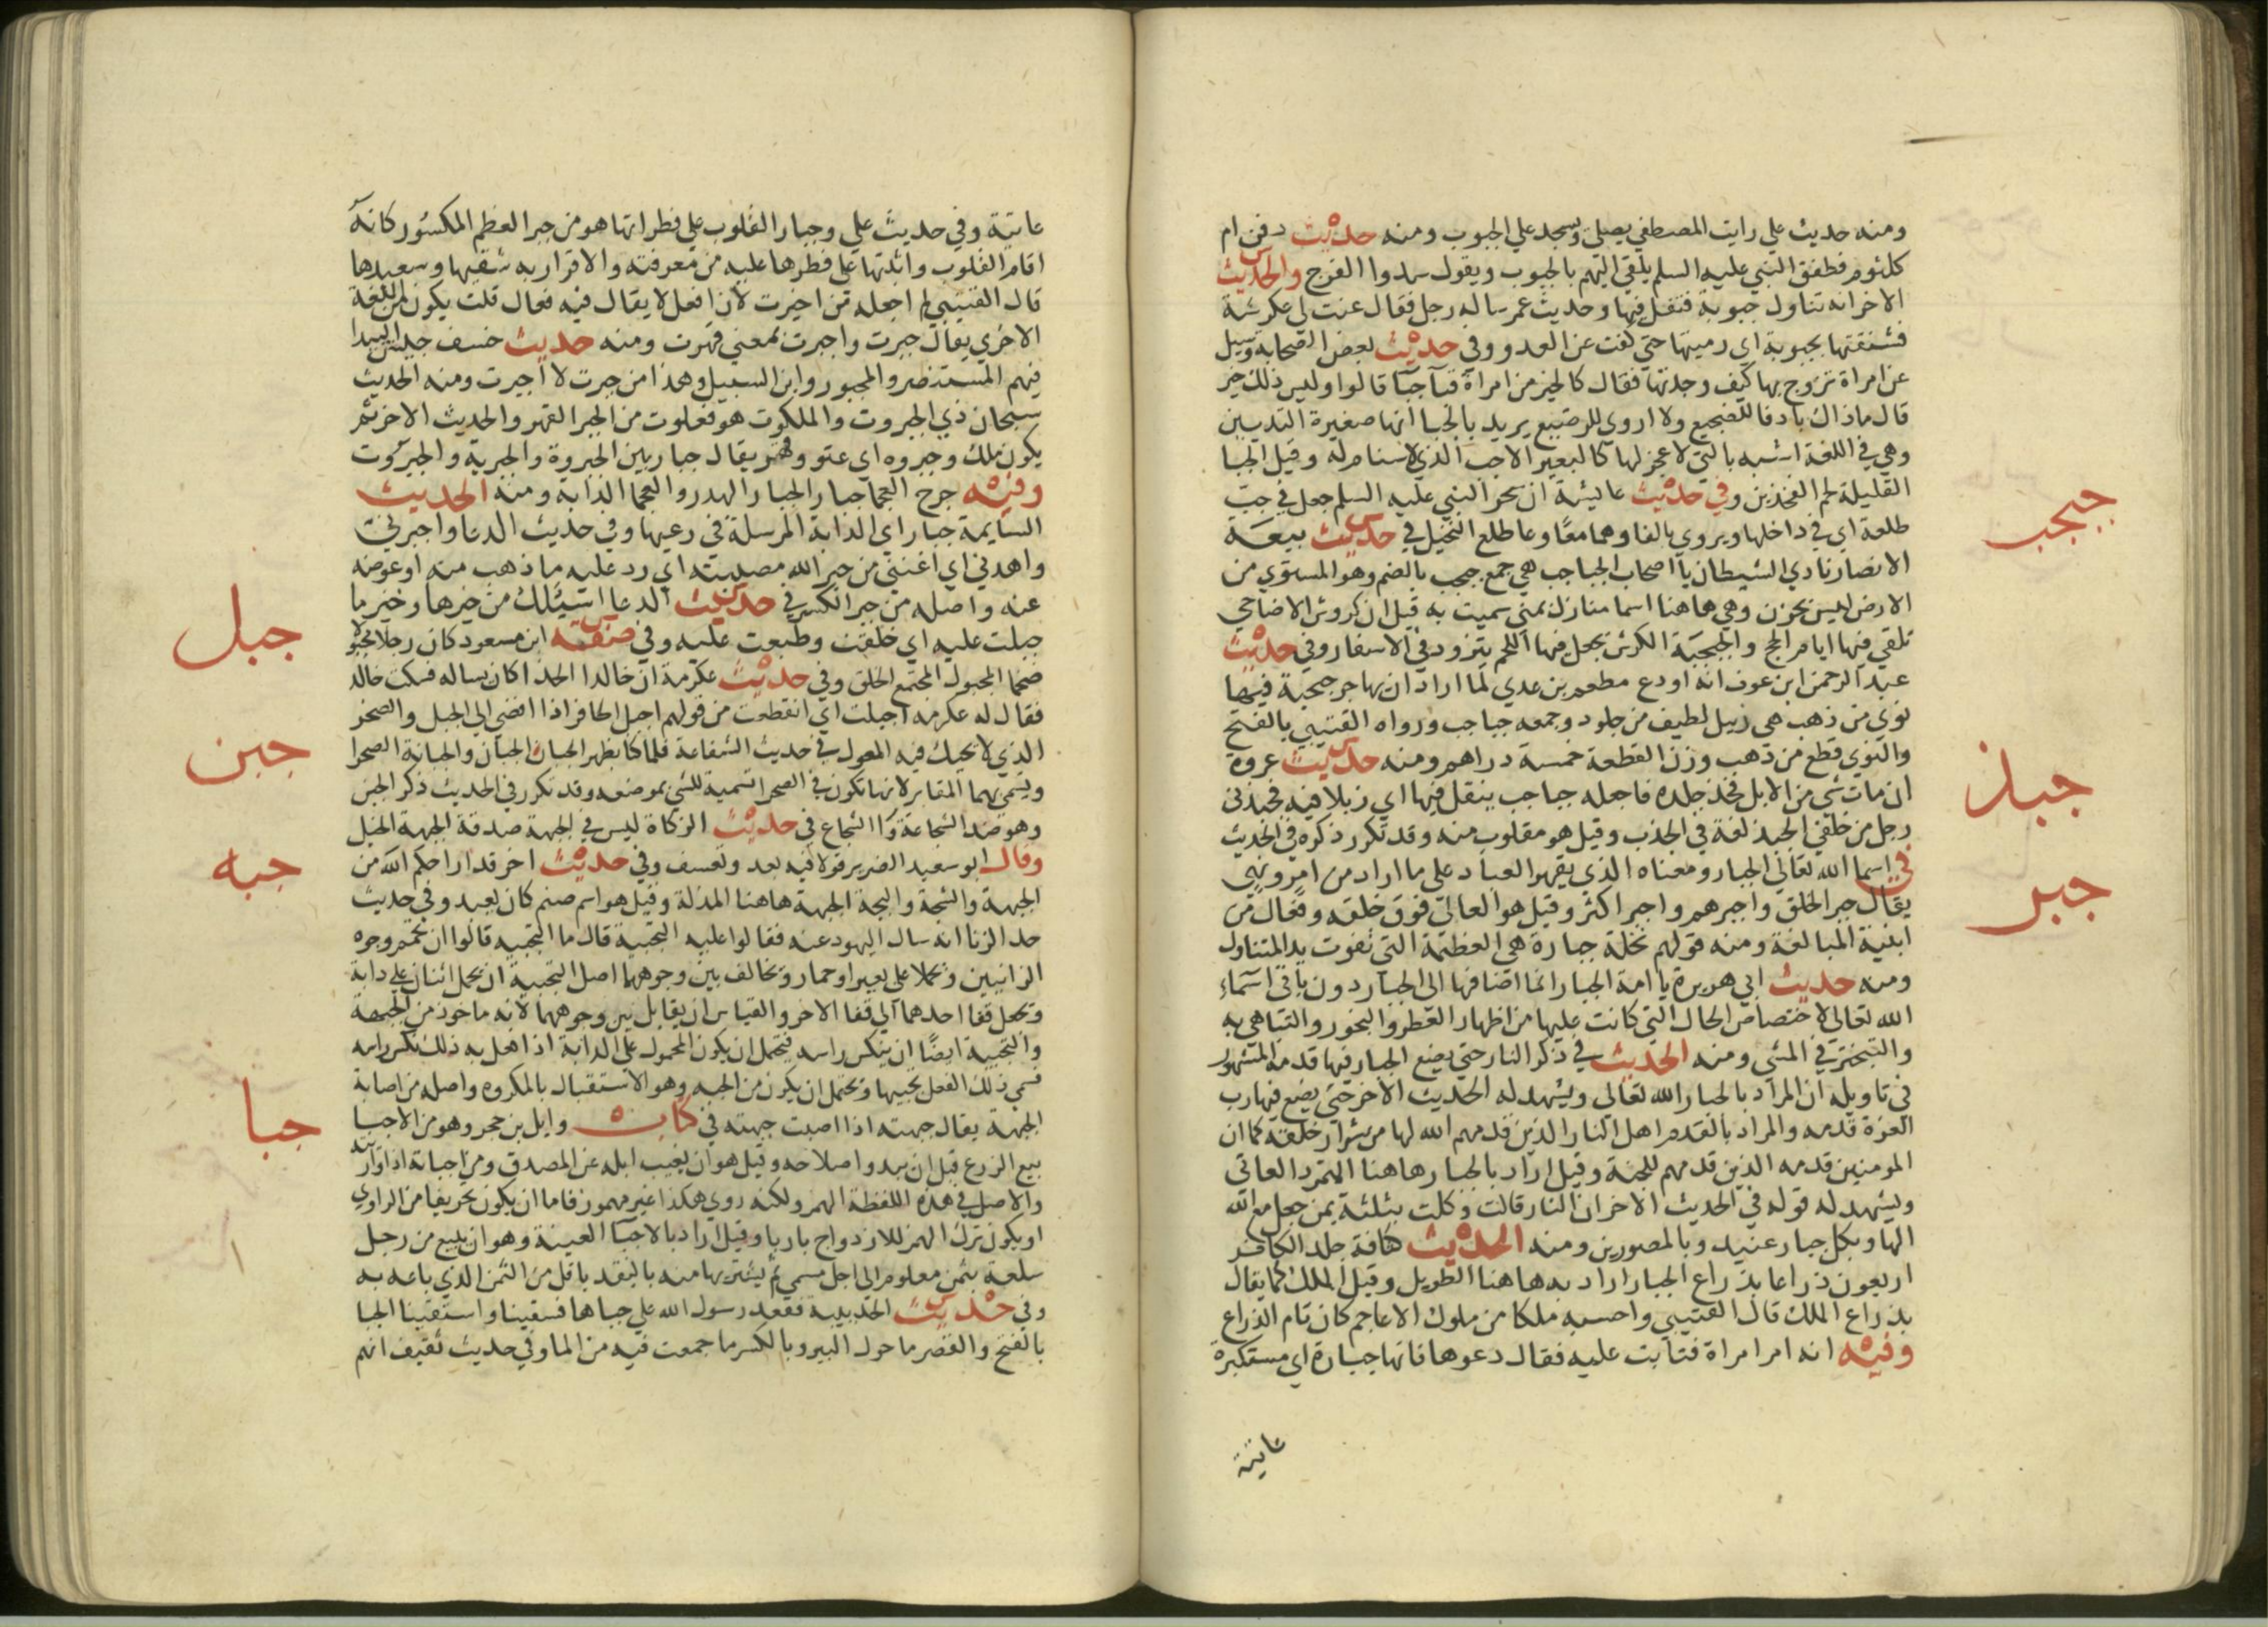 ومنه حديث علي رايت المصطفي يصلي ويسجد علي الجبوب ومنه حديث دفن ام
كلثوم فطفق النبي عليه السلم يلقي اليهم بالجبوب ويقول سدوا الفرج والحديث
الاخر انه تناول جبوبة فتفل فيها وحديث عمر ساله رجل فقال عنت لي عكرشة
فشنقتها بجبوبة اي رميتها حتي كفت عن العدو وفي حديث بعض الصحابة وسيل
عن امراة تزوج بها كيف وجدتها فقال كالخير من امراة قبا جبا قالوا وليس ذلك خير
قال ماذاك بادفا للضجيع ولا اروي للرضيع يريد بالجبا انها صغيرة الثديين
وهي في اللغة اشبه بالتي لا عجز لها كالبعير الاجب الذي لا سنام له وقيل الجبا
القليلة لحم الفخذين وفي حديث عايشة ان سحر النبي عليه السلم جعل في جب
طلعة اي في داخلها ويروي بالفا وهما معًا وعا طلع النخيل في حديث بيعة
الانصار نادي الشيطان يا اصحاب الجباجب هي جمع جبجب بالضم وهو المستوي من
الارض ليس بحزن وهي هاهنا اسما منازل بمني سميت به قيل ان كروش الاضاحي
تلقي فيها ايام الحج والجبجبة الكرش يجعل فيها اللحم يتزود في الاسفار وفي حديث
عبد الرحمن ابن عوف انه اودع مطعم بن عدي لما اراد ان يهاجر جبجبة فيها
نوي من ذهب هي زبيل لطيف من جلود وجمعه جباجب ورواه القتيبي بالفتح
والنوي قطع من ذهب وزن القطعة خمسة دراهم ومنه حديث عروة
ان مات شي من الابل فخذ جلده فاجعله جباجب ينقل فيها اي زبلا فيه فجبذني
رجل من خلفي الجبذ لغة في الجذب وقيل هو مقلوب منه وقد تكرر ذكره في الحديث
في اسما الله تعالي الجبار ومعناه الذي يقهر العباد علي ما اراد من امر ونهي
يقال جبر الخلق واجبرهم واجبر اكثر وقيل هو العالي فوق خلقه وفعال من
ابنية المبالغة ومنه قولهم نخلة جبارة هي العظيمة التي تفوت يد المتناول
ومنه حديث ابي هريرة يا امة الجبار انما اضافها الي الجبار دون باقي اسماء
الله تعالي لاختصاص الحال التي كانت عليها من اظهار العطر والبخور والتباهي به
والتبختر في المشي ومنه الحديث في ذكر النار حتي يضع الجبار فيها قدمه المشهور
في تاويله ان المراد بالجبار الله تعالي ويشهد له الحديث الاخر حتي يضع فيها رب
العزة قدمه والمراد بالقدم اهل النار الذين قدمهم الله لها من شرار خلقه كما ان
المومنين قدمه الذين قدمهم للجنة وقيل اراد بالجبار هاهنا المتمرد العاتي
ويشهد له قوله في الحديث الاخر ان النار قالت وكلت بثلثة بمن جعل مع الله
الها وبكل جبار عنيد وبالمصورين ومنه الحديث كثافة جلد الكافر
اربعون ذراعا بذراع الجبار اراد به هاهنا الطويل وقيل الملك كما يقال
بذراع الملك قال القتيبي واحسبه ملكا من ملوك الاعاجم كان تام الذراع
وفيه انه امر امراة فتابت عليه فقال دعوها فانها جبارة اي مستكبرة
عاتية
جبجب
جبذ
جبر
عاتية وفي حديث علي وجبار القلوب علي فطراتها هو من جبر العظم المكسور كانه
اقام القلوب واثبتها علي فطرها عليه من معرفته والاقرار به شقيها وسعيدها
قال القتيبي لم اجعله من اجبرت لان افعل لا يقال فيه فعال قلت يكون من اللغة
الاخري يقال جبرت واجبرت بمعني قهرت ومنه حديث خسف جيش البيدا
فيهم المستنصر والمجبور وابن السبيل وهذا من جبرت لا اجبرت ومنه الحديث
سبحان ذي الجبروت والملكوت هو فعلوت من الجبر القهر والحديث الاخر ثم
يكون ملك وجبروه اي عتو وقهر يقال جبار بين الجبروة والجبرية والجبروت
وفيه جرح العجما جبار الجبار الهدر والعجما الدابة ومنه الحديث
السايمة جبار اي الدابة المرسلة في رعيها وفي حديث الدعا واجبرني
واهدني اي اغنني من جبر الله مصيبته اي رد عليه ما ذهب منه او عوضه
عنه واصله من جبر الكسر في حديث الدعا اسئلك من خيرها وخير ما
جبلت عليه اي خلقت وطبعت عليه وفي صفة ابن مسعود كان رجلا مجبولا
ضخما المجبول المجتمع الخلق وفي حديث عكرمة ان خالدا الحذا كان يساله فسكت خالد
فقال له عكرمة اجبلت اي انقطعت من قولهم اجبل الحافر اذا افضي الي الجبل والصخر
الذي لا يحيك فيه المعول في حديث الشفاعة فلما كنا بظهر الجبان الجبان والجبانة الصحرا
ويسمي بهما المقابر لانها تكون في الصحرا تسمية للشي بموضعه وقد تكرر في الحديث ذكر الجبن
وهو ضد الشجاعة والشجاع في حديث الزكاة ليس في الجبهة صدقة الجبهة الخيل
وقال ابو سعيد الضرير قولا فيه بعد وتعسف وفي حديث اخر قد اراحكم الله من
الجبهة والسجة والبجة الجبهة هاهنا المذلة وقيل هو اسم صنم كان يعبد وفي حديث
حد الزنا انه سال اليهود عنه فقالوا عليه التجبية قال ما التجبيه قالوا ان تحمم وجوه
الزانيين ويحملا علي بعير او حمار ويخالف بين وجوههما اصل التجبية ان يحمل اثنان علي دابة
ويجعل قفا احدهما الي قفا الاخر والقياس ان يقابل بين وجوههما لانه ماخوذ من الجبهة
والتجبية ايضًا ان ينكس راسه فيحتمل ان يكون المحمول علي الدابة اذا فعل به ذلك نكس راسه
فسمي ذلك الفعل تجبيها ويحتمل ان يكون من الجبه وهو الاستقبال بالمكروه واصله من اصابة
الجبهة يقال جبهته اذا اصبت جبهته في كتابه وايل بن حجر وهو من الاجبا
بيع الزرع قبل ان يبدو اصلاحه وقيل هو ان يغيب ابله عن المصدق ومن اجباته اذا واريته
والاصل في هذه اللفظة الهمز ولكنه روي هكذا غير مهموز فاما ان يكون تحريفا من الراوي
او يكون ترك الهمز للازدواج باربا وقيل اراد بالاجبا العينة وهو ان يبيع من رجل
سلعة بثمن معلوم الي اجل مسمي ثم يشتريها منه بالنقد باقل من الثمن الذي باعه به
وفي حديث الحديبية فقعد رسول الله علي جباها فسقينا واستقينا الجبا
بالفتح والقصر ما حول البير وبالكسر ما جمعت فيه من الما وفي حديث ثقيف انهم
جبل
جبن
جبه
جبا